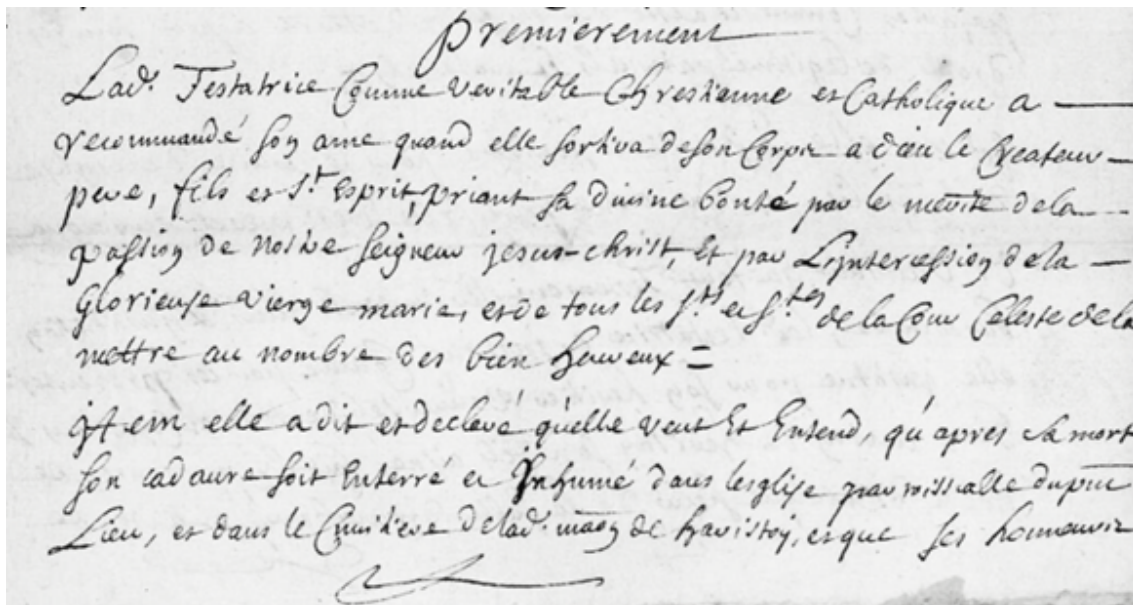 Premierement
Lad. Testatrice Comme veritable Chrestienne et Catholique a
recommandé son ame quand elle sortira de son Corps a dieu le Createur
pere, fils et S.t Esprit, priant sa divine bonté par le merite de la
passion de nostre seigneur jesus-christ, Et par L'jntercession de la
Glorieuse vierge marie, et de tous les S.ts et S.tes de la Cour Celeste de la
mettre au nombre des bien heureux =
jtem elle a dit et decleré qu'elle veut Et Entend, qu'apres sa mort
son cadavre soit Enterré et Inhumé dans lesglise parroissialle du pnt
Lieu, et dans le Cimitiere de lad. maon de et que ses honneurs